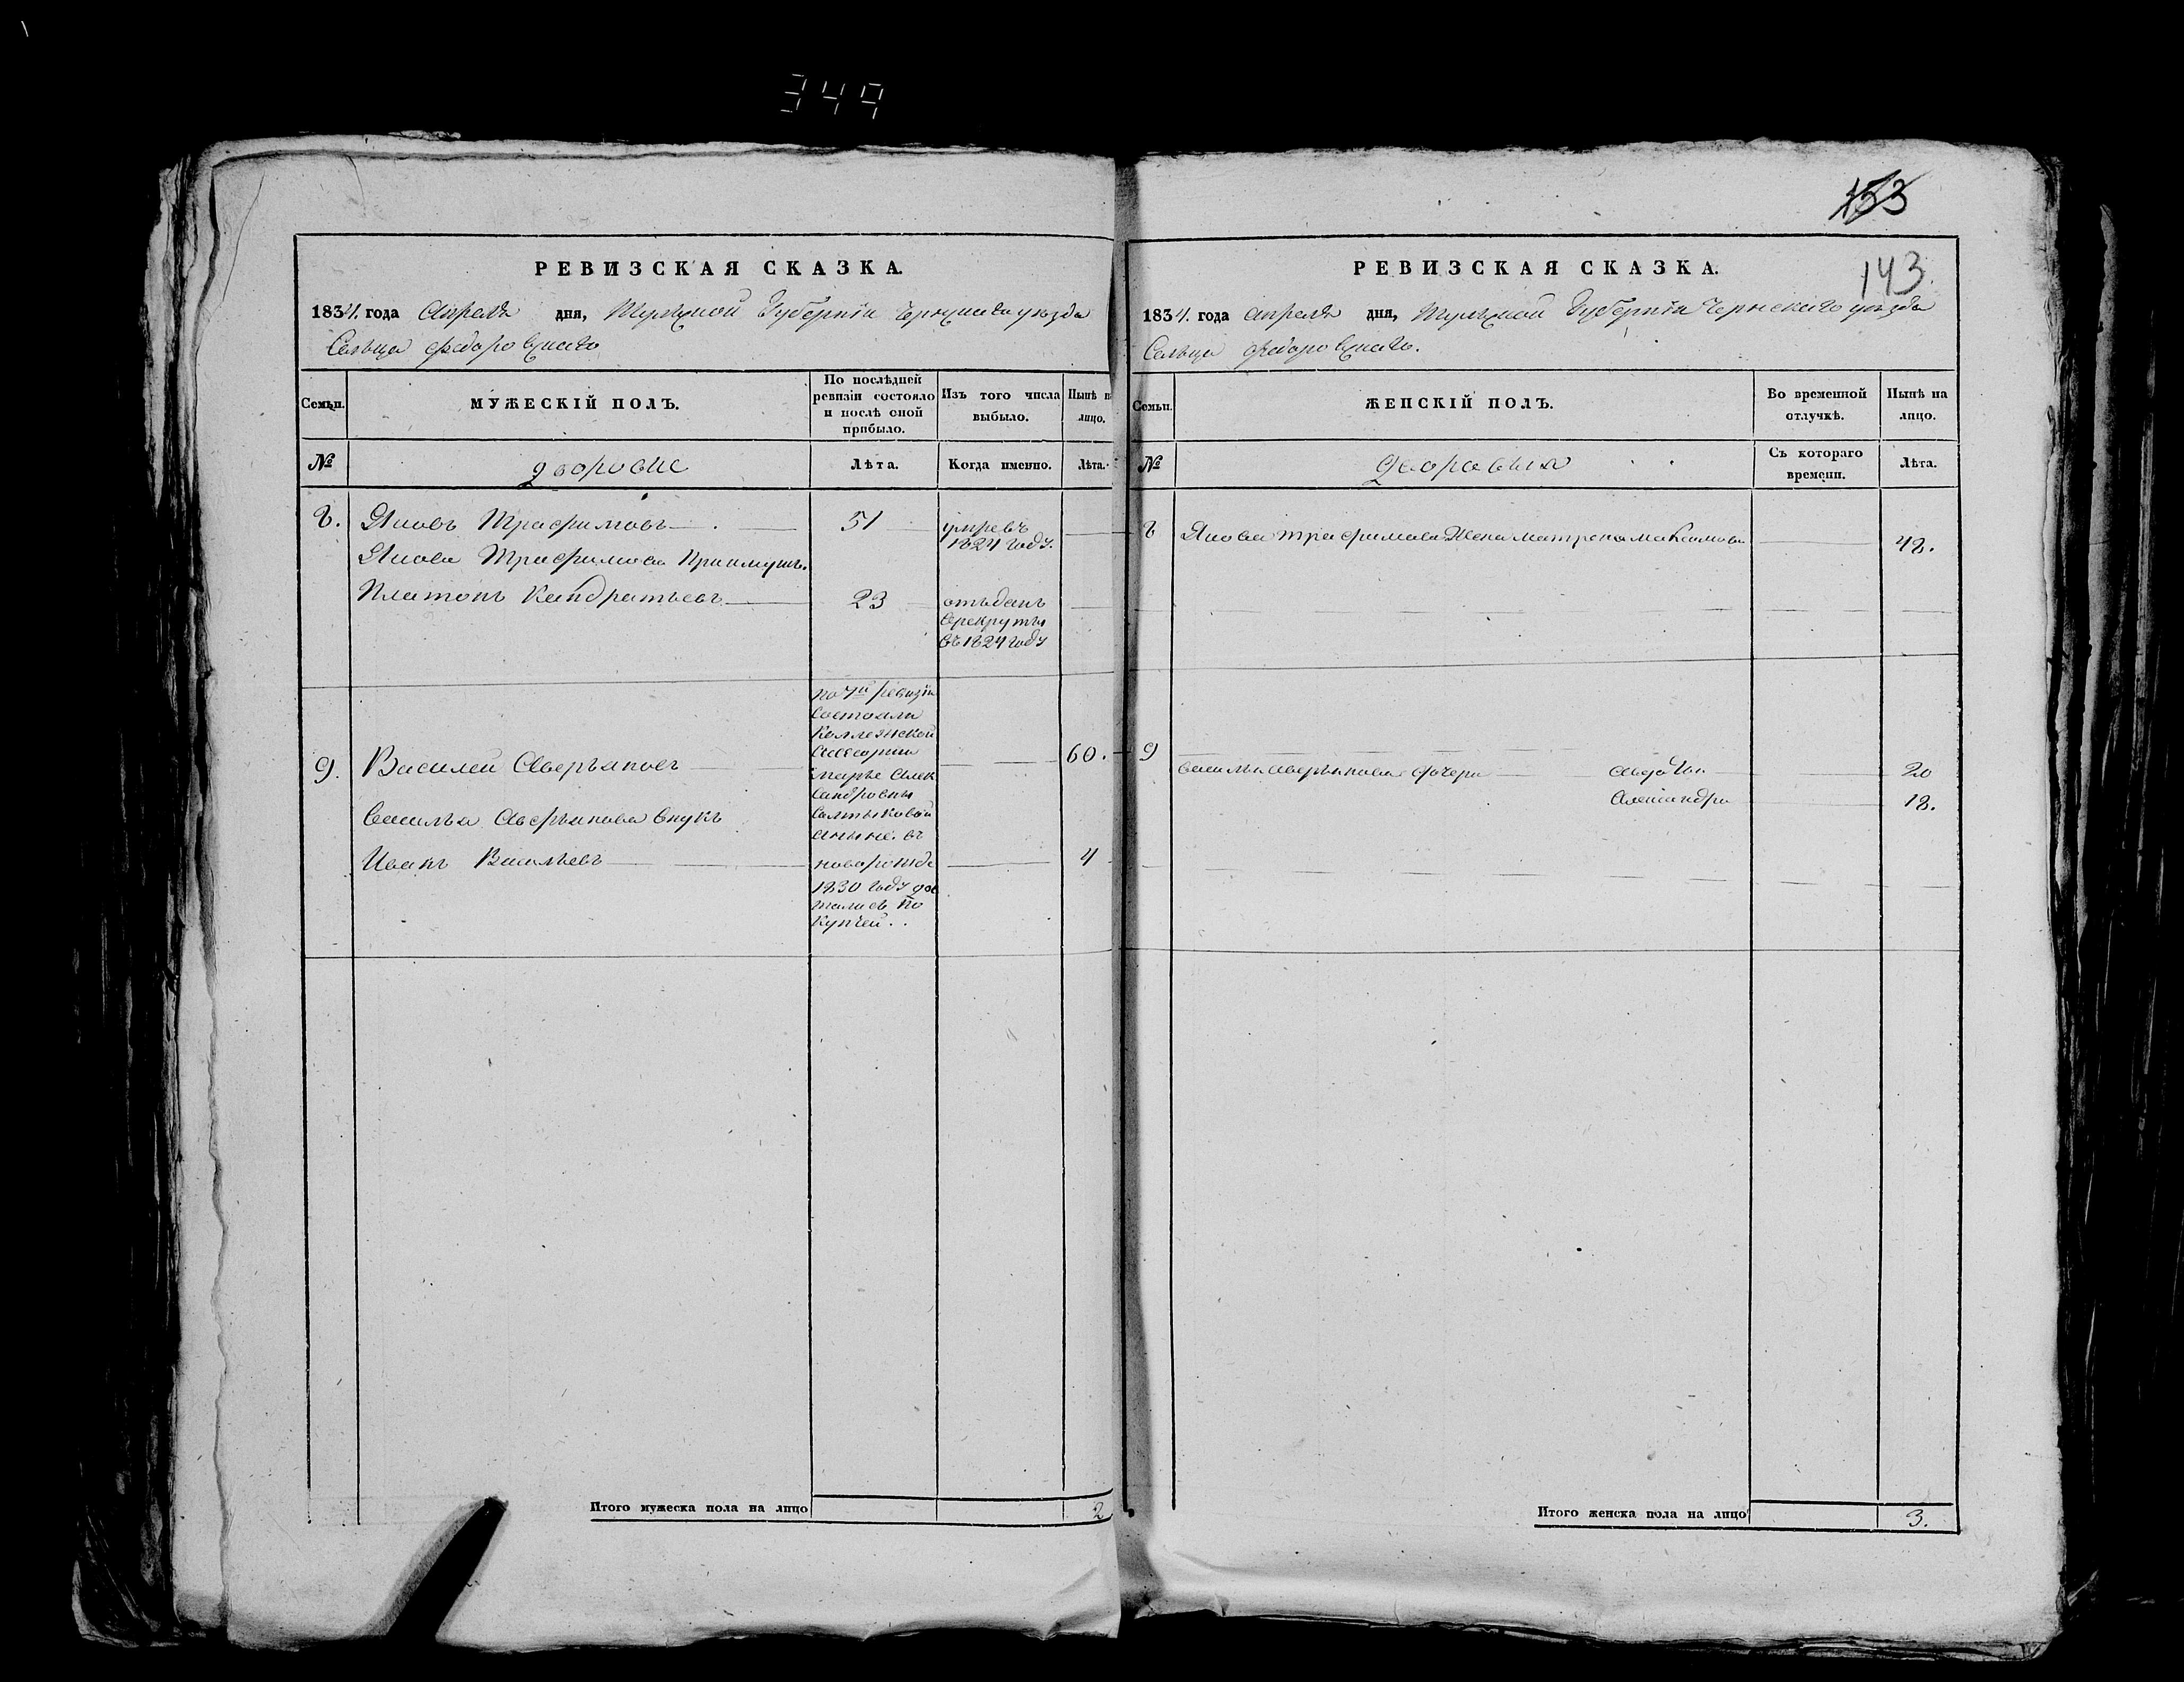 349
153
143.
РЕВИЗСКАЯ СКАЗКА.
1834. года Апреля дня, Тульской Губернiи Чернскаго уезда
Сельца Федоровскаго
Семьи.
МУЖЕСКІЙ ПОЛЪ.
По послѣдней ревизіи состояло и послѣ оной прибыло.
Изъ того числа выбыло.
Нынѣ н лицо.
№
дворовые
Лѣта.
Когда именно.
Лѣта.
8.
Яковъ Трафимовъ
51
умревъ
1824 году.
Якова Трафимова Приимушъ
Платонъ Кандратьевъ
23
отъданъ
врекруты
въ 1824 году
9.
Василей Аверьяновъ
60.
Василья Аверьянова внукъ
Иванъ Васильевъ
4
по 7й ревизiи
Состояли
Коллежской
Асесорши
марье Алек
сандровны
Салтыковой
аныне. въ
новорожде
1830 году дос
тались по
Купчей..
Итого мужеска пола на лицо
2
РЕВИЗСКАЯ СКАЗКА.
1834. года апреля дня, Тульской Губернiи Чернскаго уезда
Сельца Федоровскаго.
Семьи.
ЖЕНСКІЙ ПОЛЪ.
Во временной отлучкѣ.
Нынѣ на лицо.
№
Дворовыя
Съ котораго времени.
Лѣта.
8
Якова трафимова Жена матрена макѕимова
48.
9
василья аверьянова дочери
авдотья
20
Александра
18.
Итого женска пола на лицо
3.